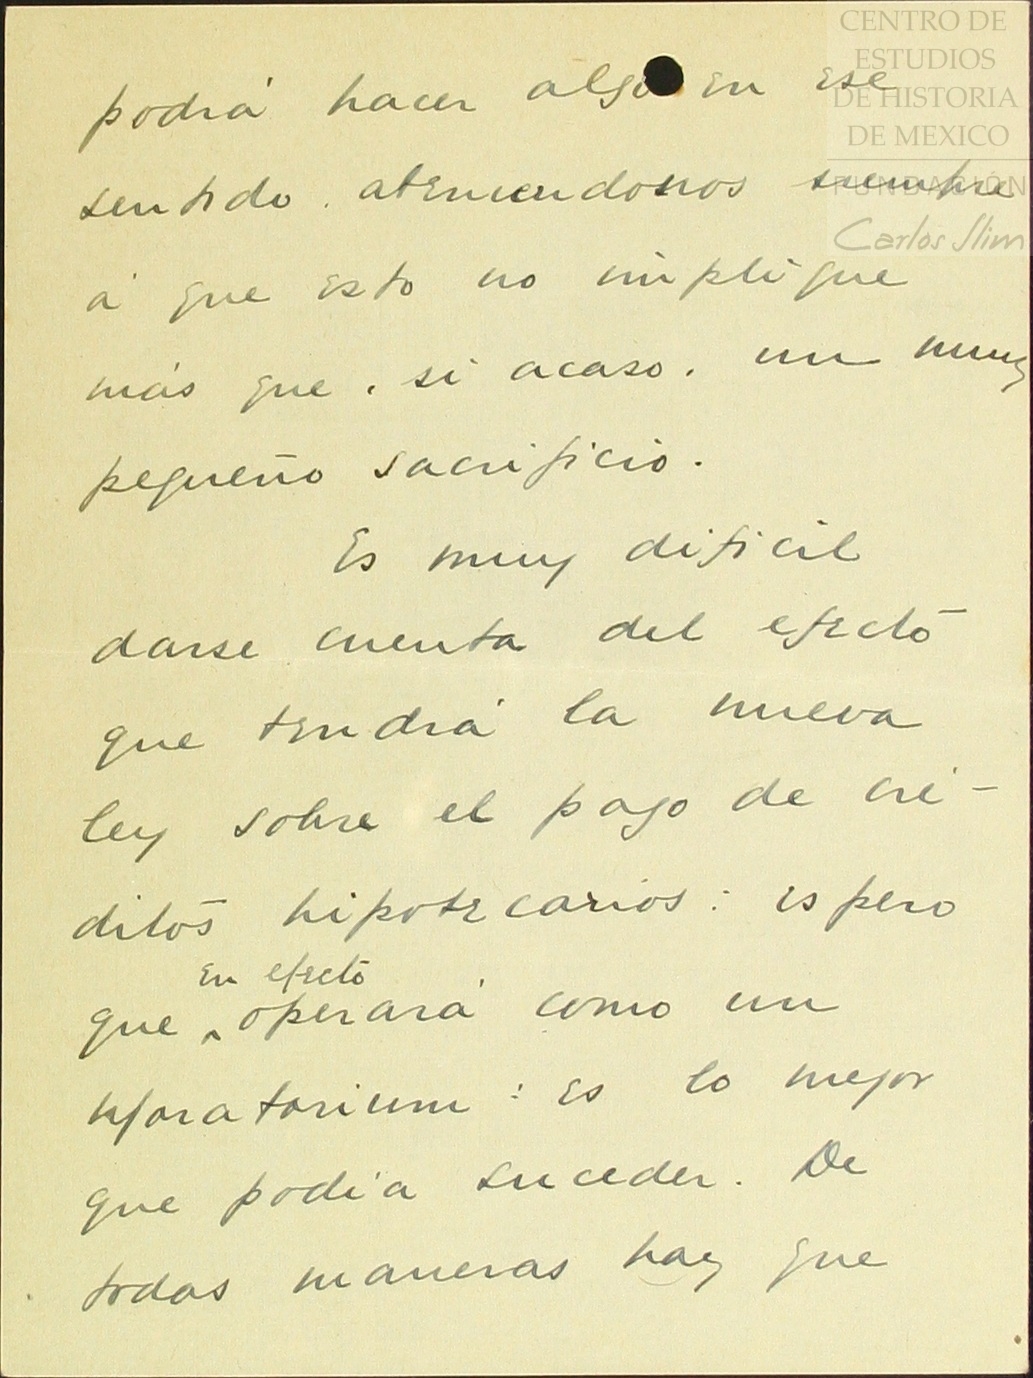 CENTRO DE
ESTUDIOS
DE HISTORIA
DE MEXICO
FUNDACIÓN
Carlos Slim
podrá hacer algo en ese
sentido. ateniendonos siempre
á que esto no implique
más que, si acaso. un muy
pequeño sacrificio.
Es muy dificil
darse cuenta del efecto
que tendrá la nueva
ley sobre el pago de cré-
ditos hipotecarios: espero
en efecto
que operará como un
moratorium: es lo mejor
que podía suceder. De
todas maneras hay que